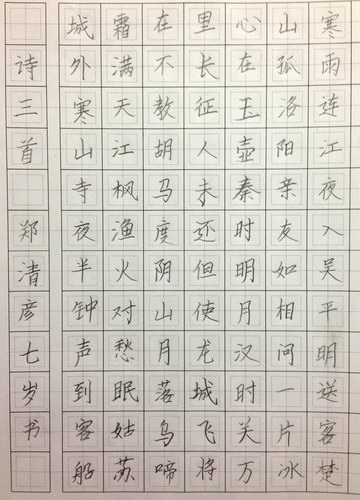 寒雨连江夜入吴平明送客楚
山孤洛阳亲友如相问一片冰
心在玉壶秦时明月汉时关万
里长征人未还但使龙城飞将
在不教胡马度阴山月落乌啼
霜满天江枫渔火对愁眠姑苏
城外寒山寺夜半钟声到客船
诗三首 郑清彦七岁书